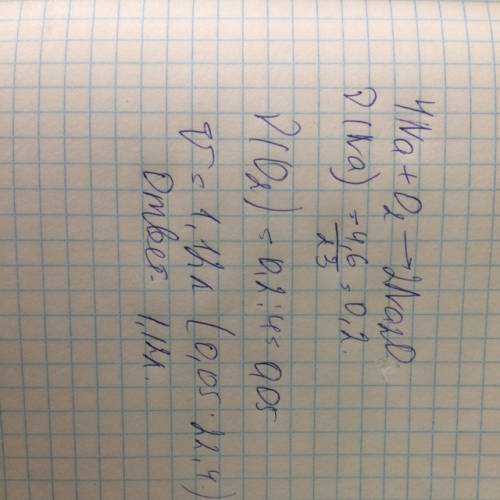 4Na + O₂ → 2Na₂O
ν(Na) = 4,6/23 = 0,2.
ν(O₂) = 0,2:4 = 0,05
V = 1,12л (0,05·22,4)
Ответ: 1,12л.